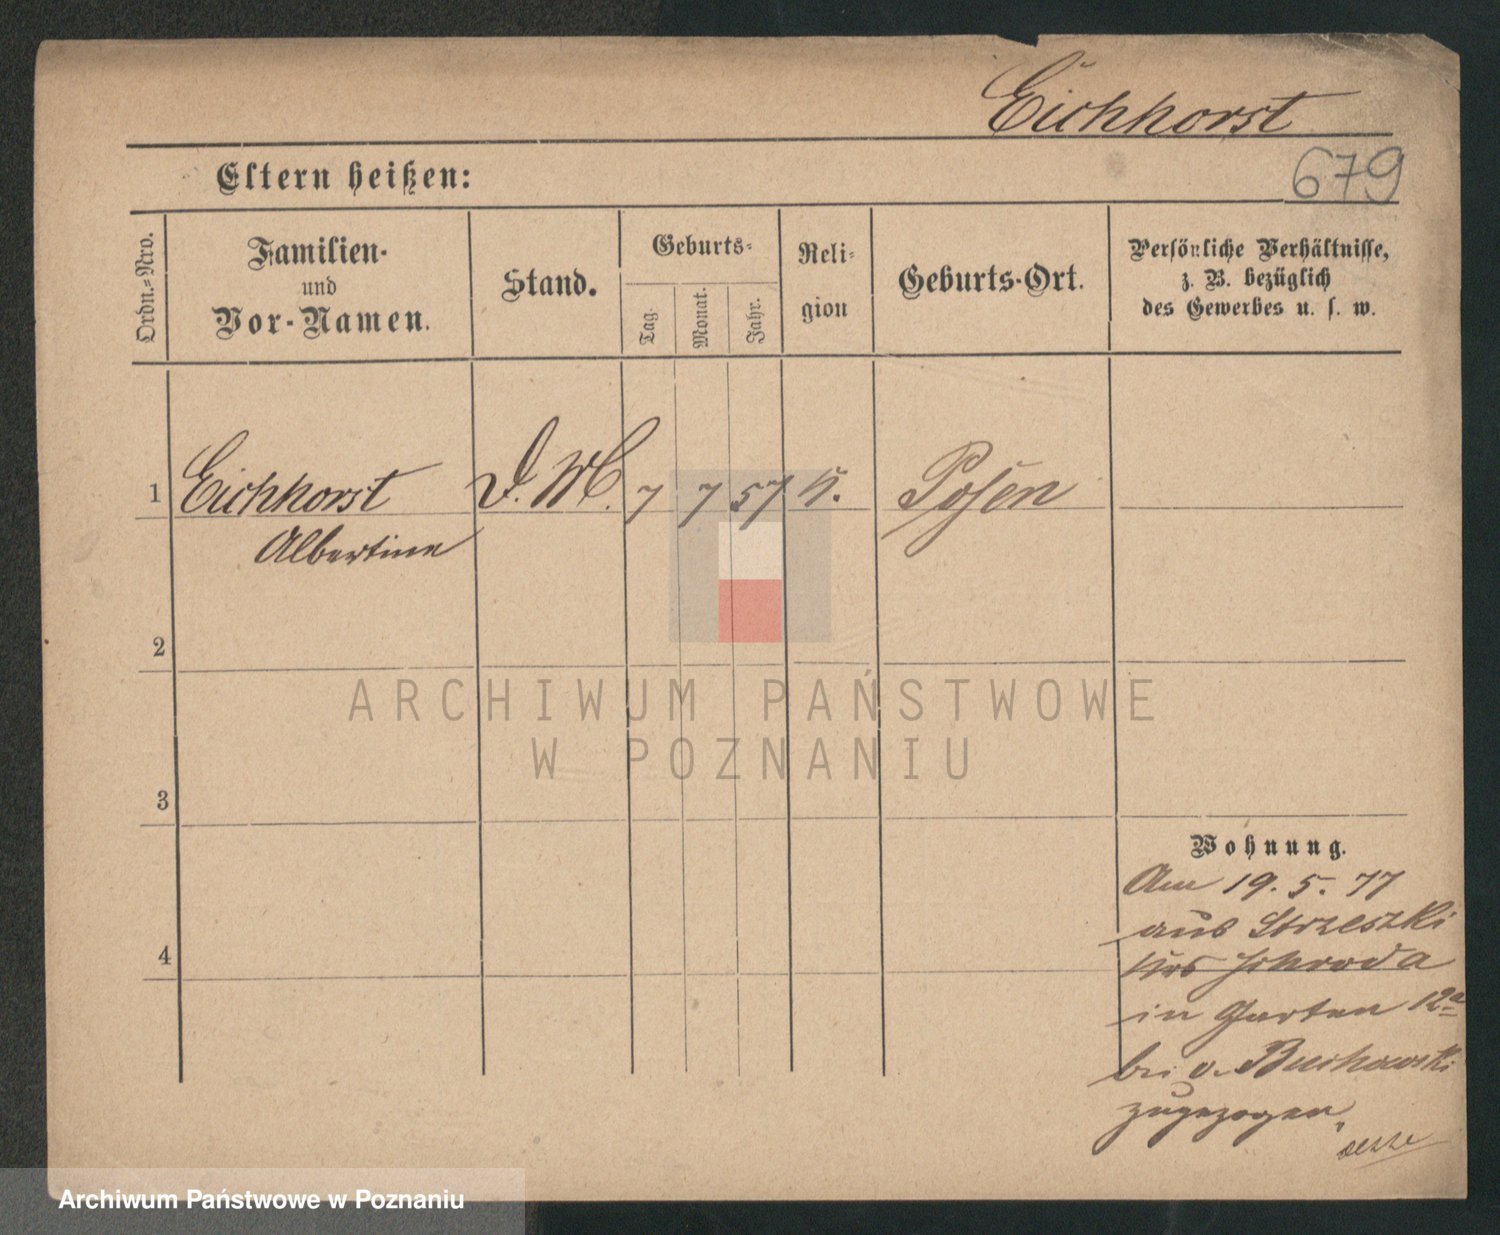 Eichhorst
Eltern heißen:
679
Ordn.-Nro.
Familien-
und
Vor-Namen.
Stand.
Geburts-
Tag.
Monat.
Jahr.
Reli-
gion
Geburts-Ort.
Persönliche Verhältnisse,
z. B. bezüglich
des Gewerbes u. s. w.
1 Eichhorst D. M. 7 7 57 k. Posen
Albertine
2
ARCHIWUM PAŃSTWOWE
W POZNANIU
3
Wohnung.
Am 19. 5. 77
aus Strzeszki
4
Krs Schroda
in Garten 12a
bei v. Buchowski
zugezogen
Archiwum Państwowe w Poznaniu